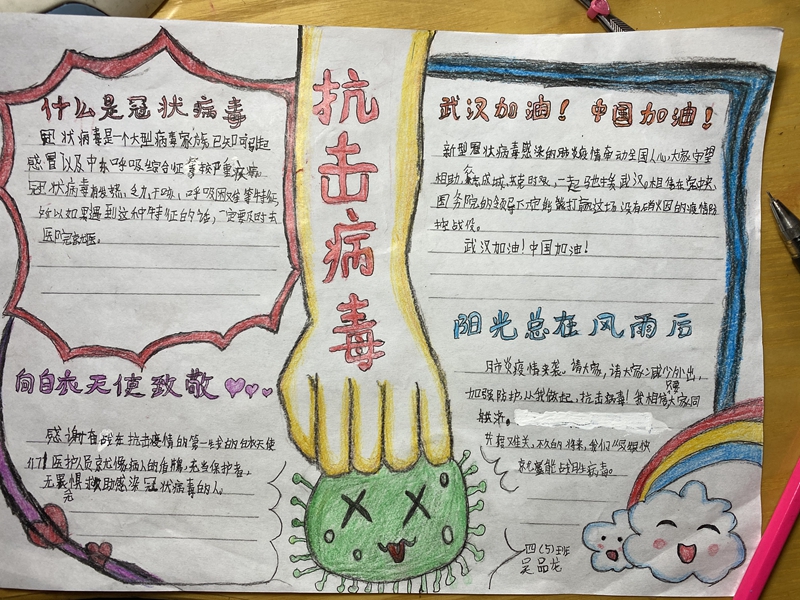 什么是冠状病毒
冠状病毒是一个大型病毒家族,已知可引起
感冒以及中东呼吸综合征等较严重疾病。
冠状病毒有发烧,乏力,干咳,呼吸困难等特征
所以如果遇到这种特征的话,一定要及时去
医院
向白衣天使致敬
感谢奋战在抗击疫情的第一线的白衣天使
们!医护人员
无畏惧救助感染冠状病毒的人。
抗击病毒
武汉加油!中国加油!
新型冠状病毒感染的肺炎疫情牵动全国人心,大家守望
相助,众志成城,
国务院的领导下,定能打赢这场没有硝烟的疫情防
控战役。
武汉加油!中国加油!
阳光总在风雨后
肺炎疫情来袭。请大家,请大家:减少外出,
加强防护,从我做起,抗击病毒!我相信只要大家同
舟共济。
共担难关,不久的将来,我们
就能战胜病毒。
四(5)班
吴品龙